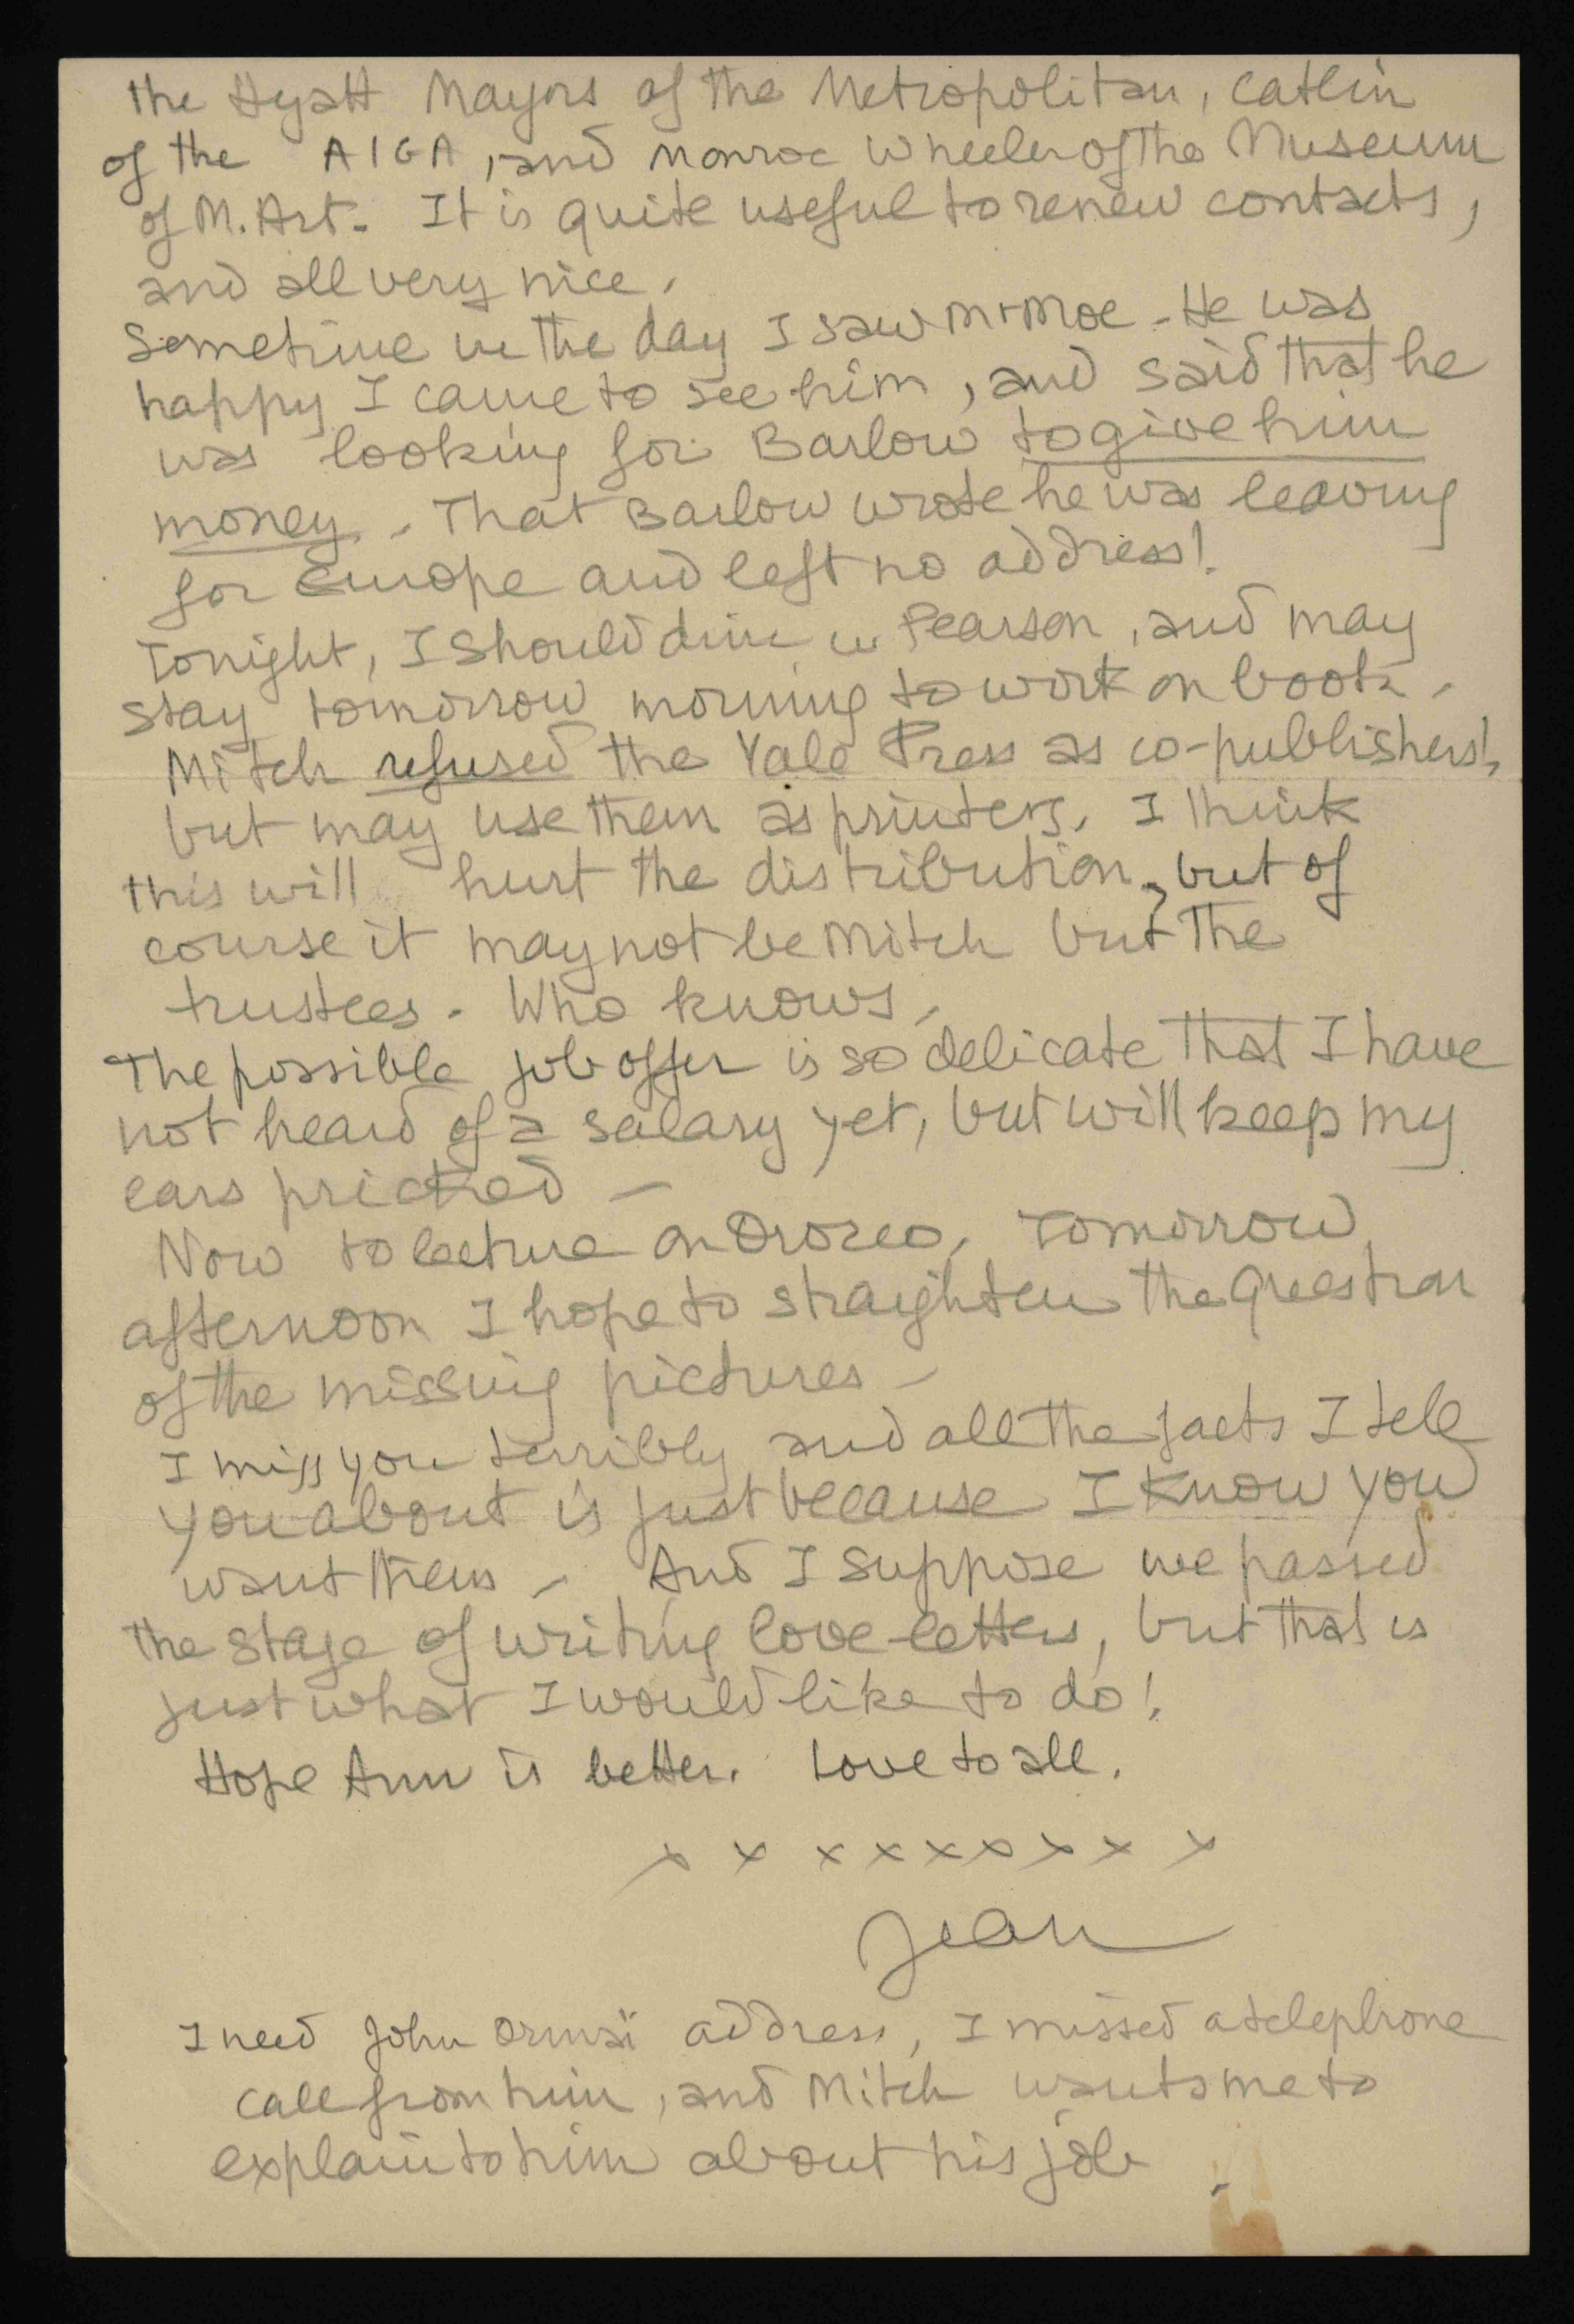 the Hyatt Mayors of the Metropolitan, Catlin
of the AIGA, and Monroe Wheeler of the Museum
of M. Art. It is quite useful to renew contacts,
and all very nice.
Sometime in the day I saw Mr Moe. He was
happy I came to see him, and said that he
was looking for Barlow to give him
money. That Barlow wrote he was leaving
for Europe and left no address!
Tonight, I should dine w Pearson, and may
stay tomorrow morning to work on book.
Mitch refused the Yale Press as co-publishers!,
but may use them as printers. I think
this will hurt the distribution, but of
course it may not be Mitch but the
trustees. Who knows.
The possible job offer is so delicate that I have
not heard of a salary yet, but will keep my
ears pricked –
Now to lecture on Orozco. Tomorrow
afternoon I hope to straighten the question
of the missing pictures –
I miss you terribly and all the facts I tell
you about is just because I know you
want them – And I suppose we passed
the stage of writing love-letters, but that is
just what I would like to do!
Hope Ann is better. Love to all.
x x x x x x x x x
Jean
I need John address, I missed a telephone
call from him, and Mitch wants me to
explain to him about his job.